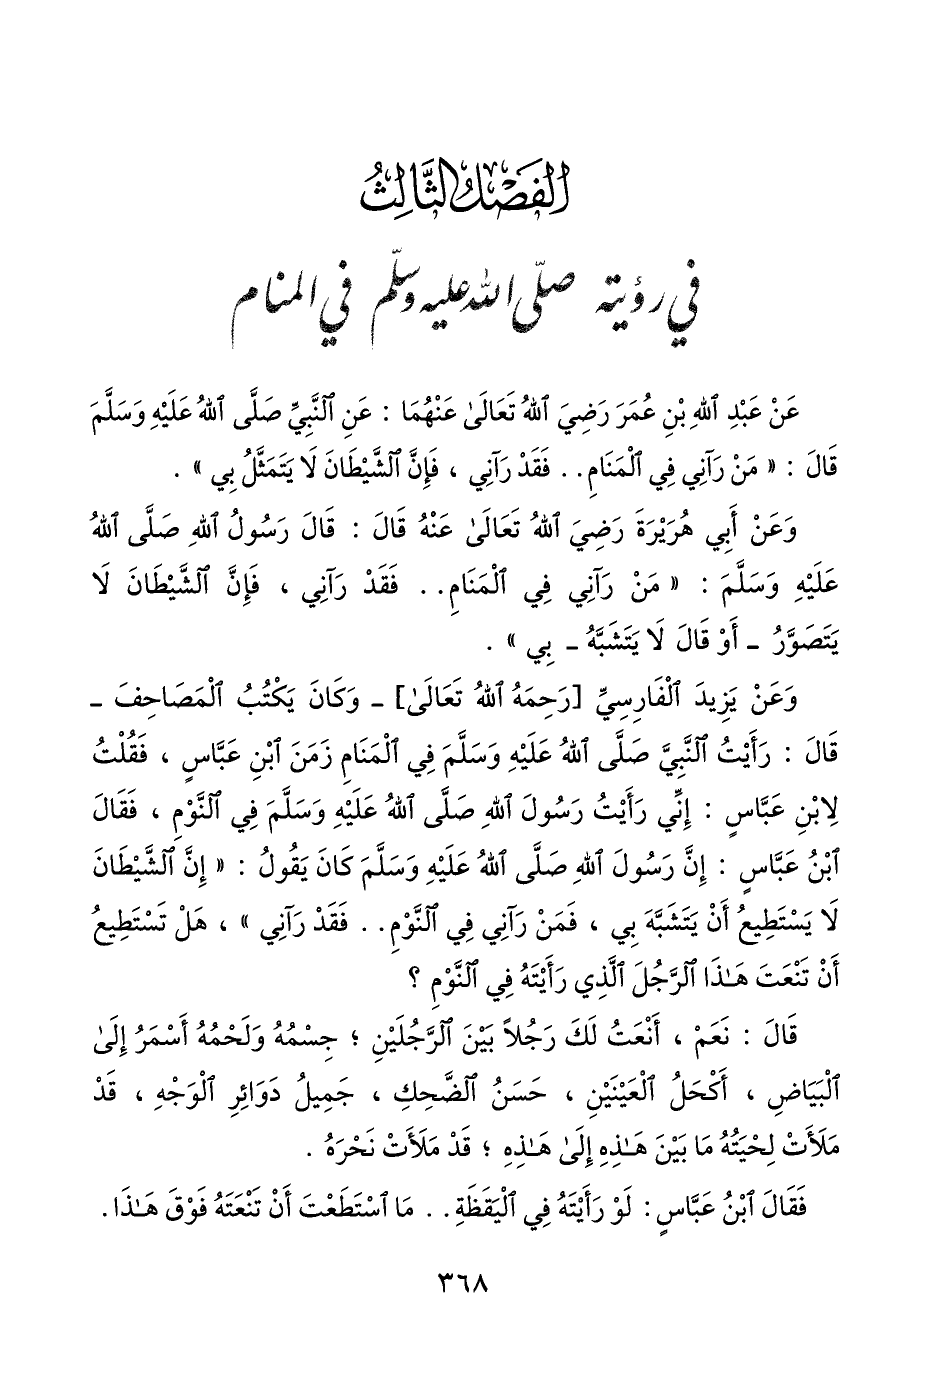 الفَصْلُ الثَّالِثُ
في رؤيته صلّى الله عليه وسلّم في المنام
عَنْ عَبْدِ ٱللهِ بْنِ عُمَرَ رَضِيَ ٱللهُ تَعَالَىٰ عَنْهُمَا : عَنِ ٱلنَّبِيِّ صَلَّى ٱللهُ عَلَيْهِ وَسَلَّمَ
قَالَ : « مَنْ رَآنِي فِي ٱلْمَنَامِ.. فَقَدْ رَآنِي ، فَإِنَّ ٱلشَّيْطَانَ لَا يَتَمَثَّلُ بِي » .
وَعَنْ أَبِي هُرَيْرَةَ رَضِيَ ٱللهُ تَعَالَىٰ عَنْهُ قَالَ : قَالَ رَسُولُ ٱللهِ صَلَّى ٱللهُ
عَلَيْهِ وَسَلَّمَ : « مَنْ رَآنِي فِي ٱلْمَنَامِ.. فَقَدْ رَآنِي ، فَإِنَّ ٱلشَّيْطَانَ لَا
يَتَصَوَّرُ ـ أَوْ قَالَ لَا يَتَشَبَّهُ ـ بِي » .
وَعَنْ يَزِيدَ ٱلْفَارِسِيِّ [رَحِمَهُ ٱللهُ تَعَالَىٰ] ـ وَكَانَ يَكْتُبُ ٱلْمَصَاحِفَ ـ
قَالَ : رَأَيْتُ ٱلنَّبِيَّ صَلَّى ٱللهُ عَلَيْهِ وَسَلَّمَ فِي ٱلْمَنَامِ زَمَنَ ٱبْنِ عَبَّاسٍ ، فَقُلْتُ
لِابْنِ عَبَّاسٍ : إِنِّي رَأَيْتُ رَسُولَ ٱللهِ صَلَّى ٱللهُ عَلَيْهِ وَسَلَّمَ فِي ٱلنَّوْمِ ، فَقَالَ
ٱبْنُ عَبَّاسٍ : إِنَّ رَسُولَ ٱللهِ صَلَّى ٱللهُ عَلَيْهِ وَسَلَّمَ كَانَ يَقُولُ : « إِنَّ ٱلشَّيْطَانَ
لَا يَسْتَطِيعُ أَنْ يَتَشَبَّهَ بِي ، فَمَنْ رَآنِي فِي ٱلنَّوْمِ.. فَقَدْ رَآنِي » ، هَلْ تَسْتَطِيعُ
أَنْ تَنْعَتَ هَـٰذَا ٱلرَّجُلَ ٱلَّذِي رَأَيْتَهُ فِي ٱلنَّوْمِ ؟
قَالَ : نَعَمْ ، أَنْعَتُ لَكَ رَجُلاً بَيْنَ ٱلرَّجُلَيْنِ ؛ جِسْمُهُ وَلَحْمُهُ أَسْمَرُ إِلَىٰ
ٱلْبَيَاضِ ، أَكْحَلُ ٱلْعَيْنَيْنِ ، حَسَنُ ٱلضَّحِكِ ، جَمِيلُ دَوَائِرِ ٱلْوَجْهِ ، قَدْ
مَلَأَتْ لِحْيَتُهُ مَا بَيْنَ هَـٰذِهِ إِلَىٰ هَـٰذِهِ ؛ قَدْ مَلَأَتْ نَحْرَهُ .
فَقَالَ ٱبْنُ عَبَّاسٍ : لَوْ رَأَيْتَهُ فِي ٱلْيَقَظَةِ.. مَا ٱسْتَطَعْتَ أَنْ تَنْعَتَهُ فَوْقَ هَـٰذَا .
٣٦٨